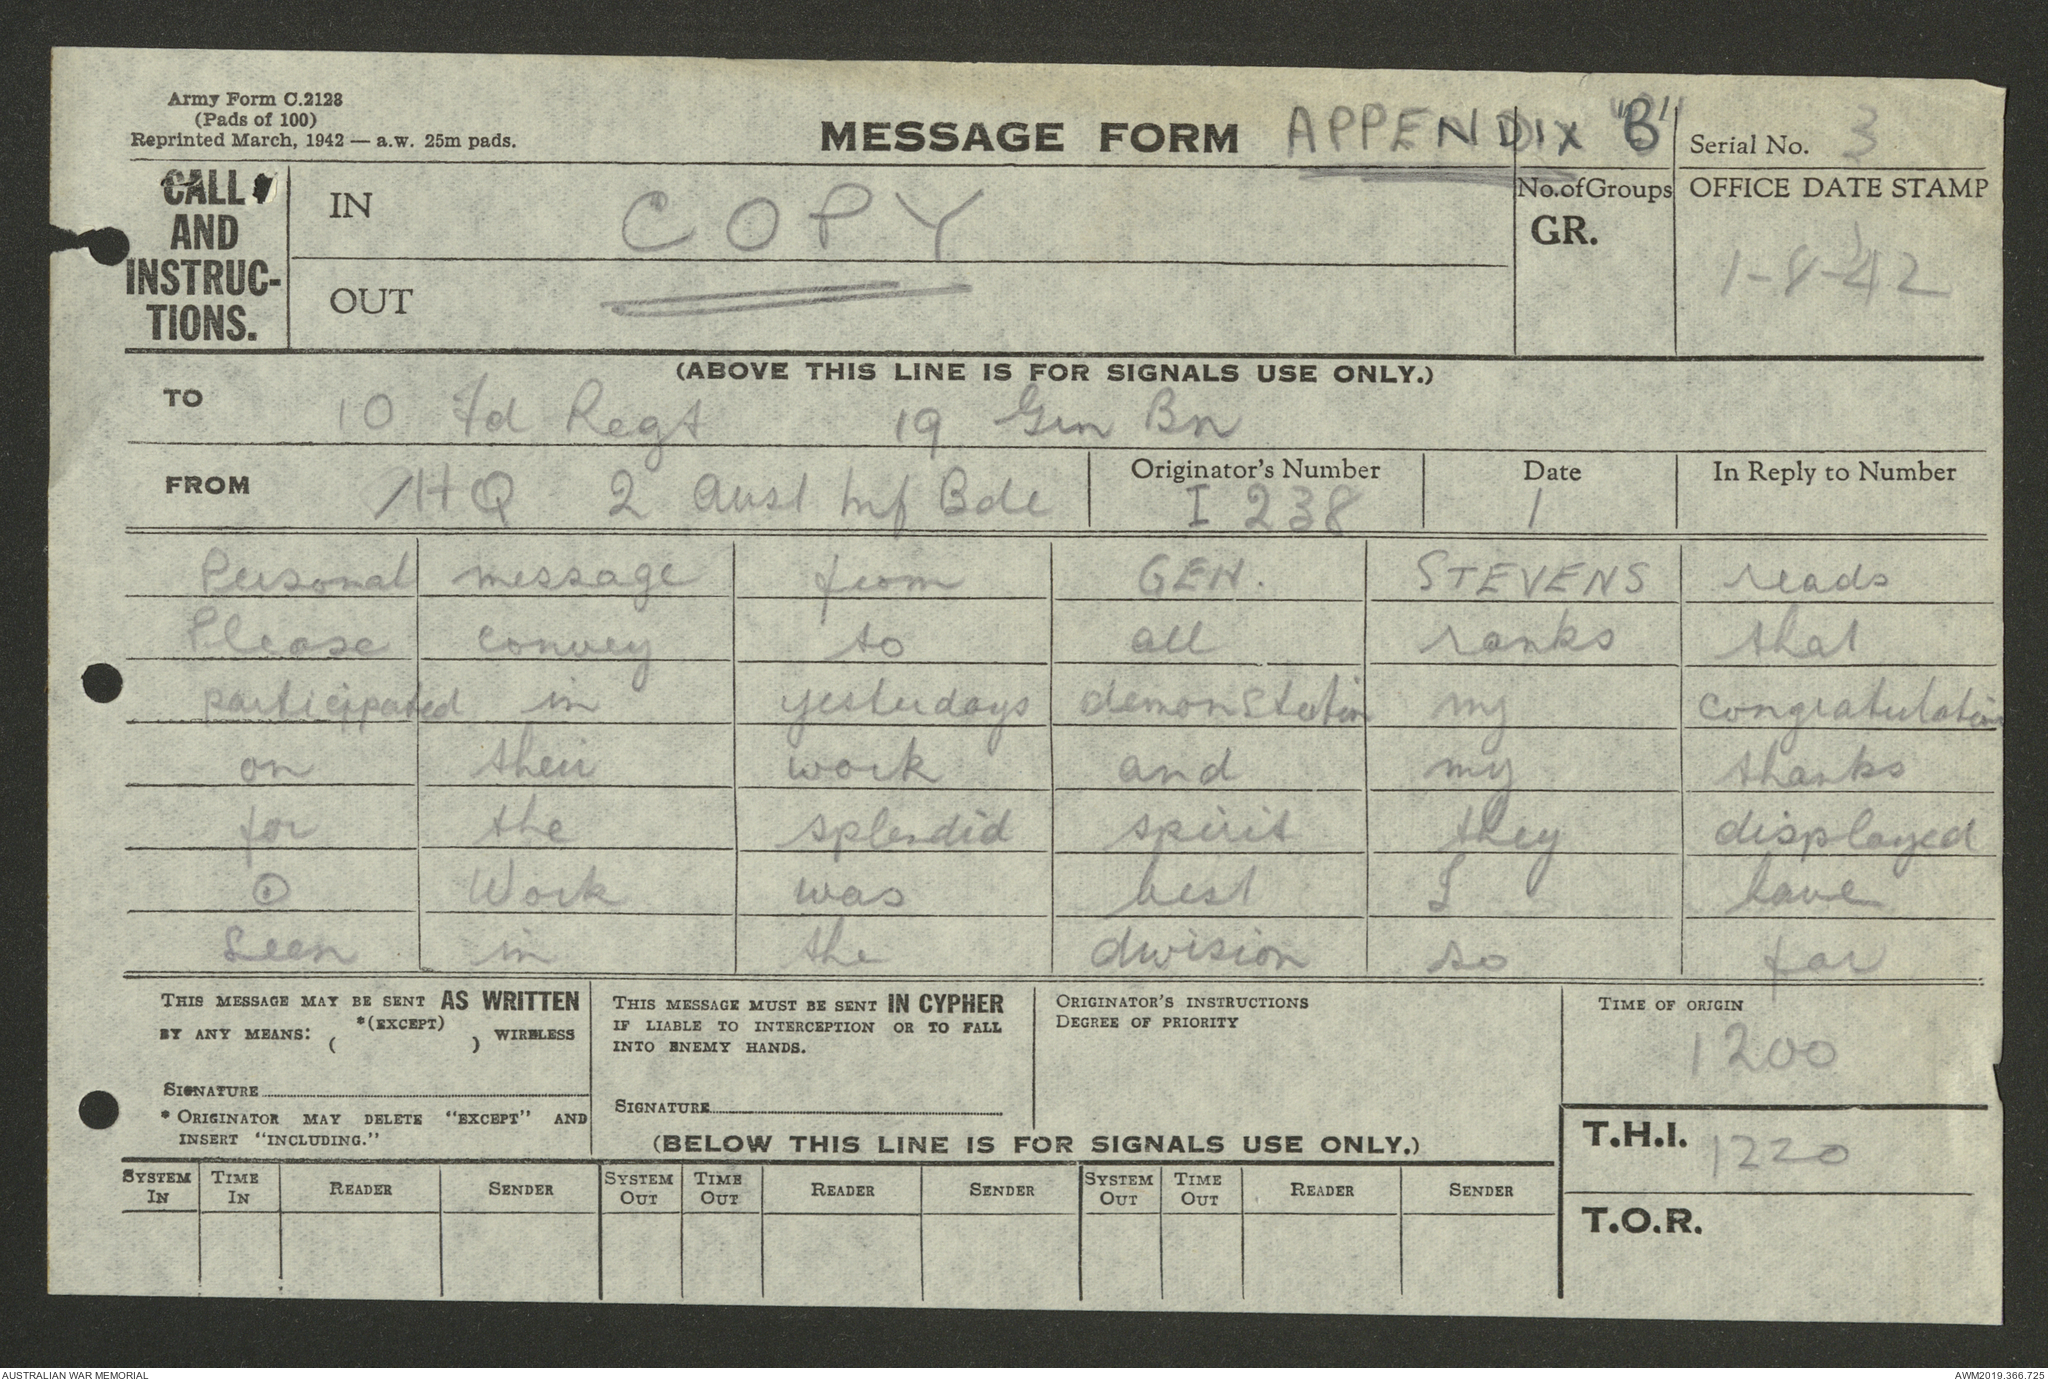 Army Form C.2128
(Pads of 100)
Reprinted March, 1942 — a.w. 25m pads.
MESSAGE FORM APPENDIX "B"
Serial No. 3
CALL
AND
INSTRUC-
TIONS.
IN COPY
OUT
No. of Groups
GR.
OFFICE DATE STAMP
1-8-42
(ABOVE THIS LINE IS FOR SIGNALS USE ONLY.)
TO 10 Fd Regt 19 Gin Bn
FROM HQ 2 Aust Inf Bde
Originator's Number
I 238
Date
1
In Reply to Number
Personal message from GEN. STEVENS reads
Please convey to all ranks that
participated in yesterdays demonstration my congratulations
on their work and my thanks
for the splendid spirit they displayed
⊙ Work was best I have
seen in the division so far
THIS MESSAGE MAY BE SENT AS WRITTEN
BY ANY MEANS: *(EXCEPT) ( ) WIRELESS
SIGNATURE
* ORIGINATOR MAY DELETE "EXCEPT" AND
INSERT "INCLUDING."
THIS MESSAGE MUST BE SENT IN CYPHER
IF LIABLE TO INTERCEPTION OR TO FALL
INTO ENEMY HANDS.
SIGNATURE
ORIGINATOR'S INSTRUCTIONS
DEGREE OF PRIORITY
TIME OF ORIGIN
1200
T.H.I. 1220
T.O.R.
(BELOW THIS LINE IS FOR SIGNALS USE ONLY.)
SYSTEM IN TIME IN READER SENDER SYSTEM OUT TIME OUT READER SENDER SYSTEM OUT TIME OUT READER SENDER
AUSTRALIAN WAR MEMORIAL AWM2019.366.725